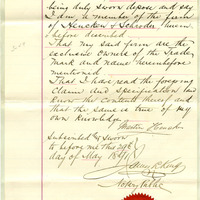 being duly sworn depose and say
I am a member of the firm
of Hencken & Schroder herein
before described
That my said firm are the
exclusive owners of the Trade
Mark and name hereinbefore
mentioned
That I have read the foregoing
Claim and Specification and
know the contents thereof and
that the same is true of my
own knowledge
Martin Hencken
Subscribed & Sworn
to before me this 29th
day of May
Notary Public